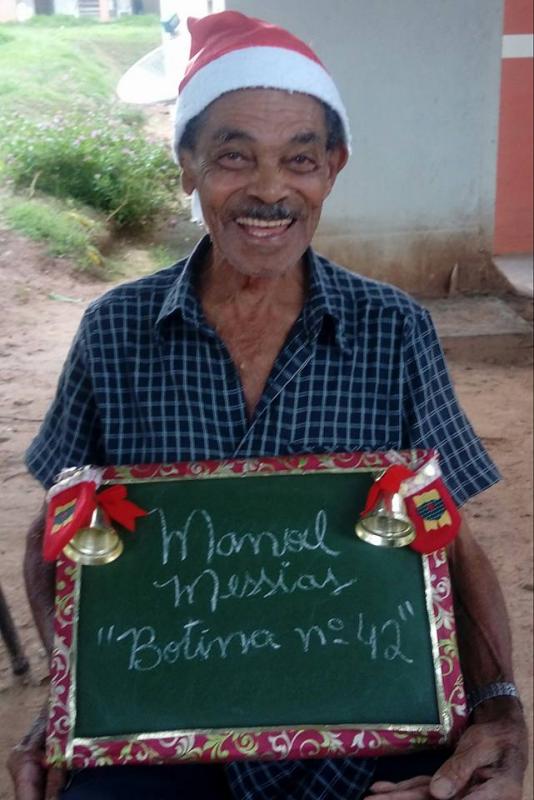 Manoel
Messias
"Botina nº 42"